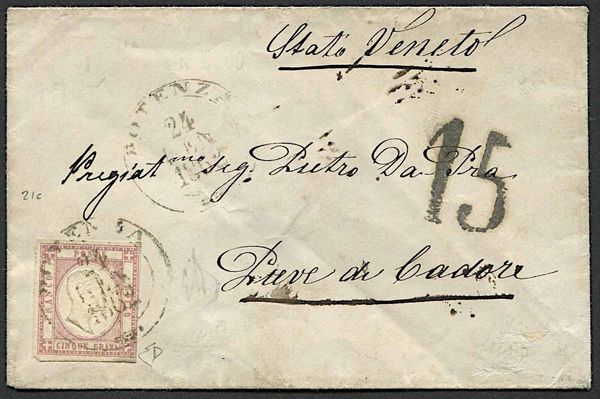 Stato Veneto
POTENZA
24
GEN
15
Pregiat.mo sig. Pietro Da Pra
21c
Pieve di Cadore
POTENZA
24
GEN
FRANCO
CINQUE GRANA
ED